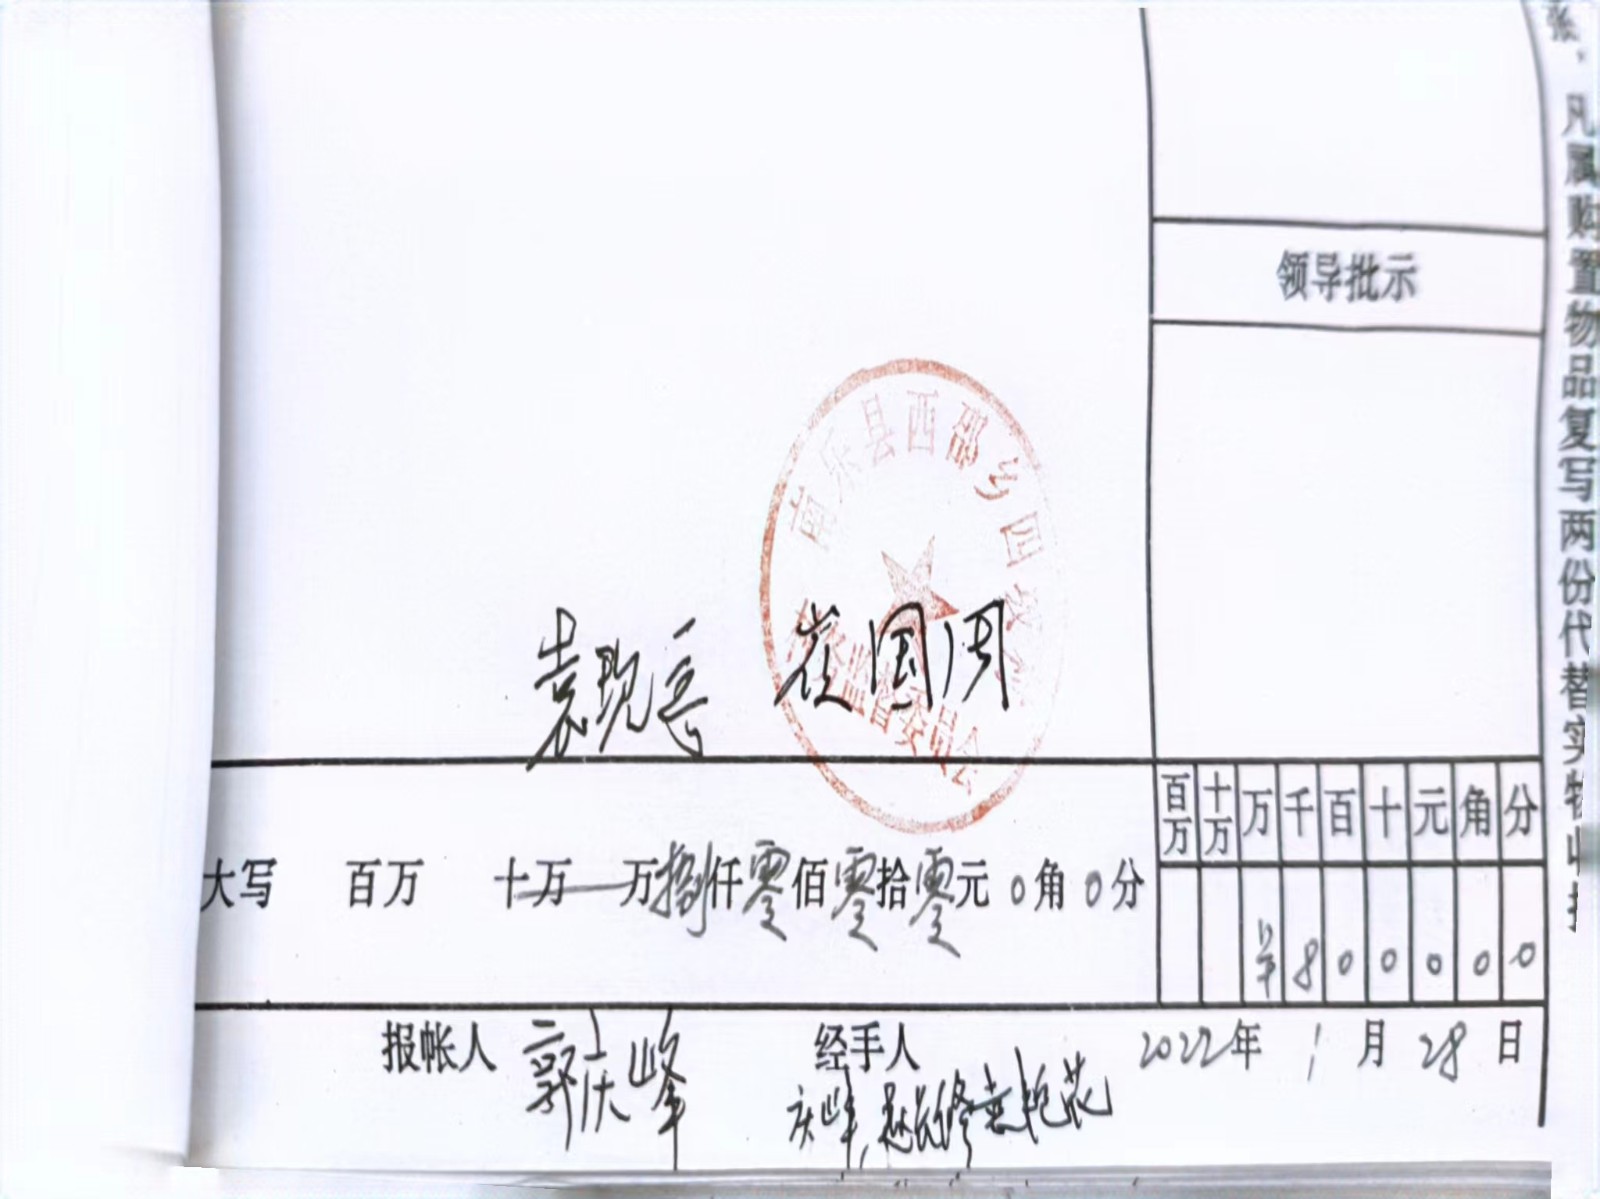 张，凡属购置物品复写两份代替实物收据
领导批示
南乐县西邵乡四
村务监督委员会
袁现 崔国周
百万 十万 万 千 百 十 元 角 分
大写 百万 十万 万捌仟零佰零拾零元0角0分
¥ 8 0 0 0 0 0
报帐人 郭庆峰 经手人 2022年1月28日
庆峰